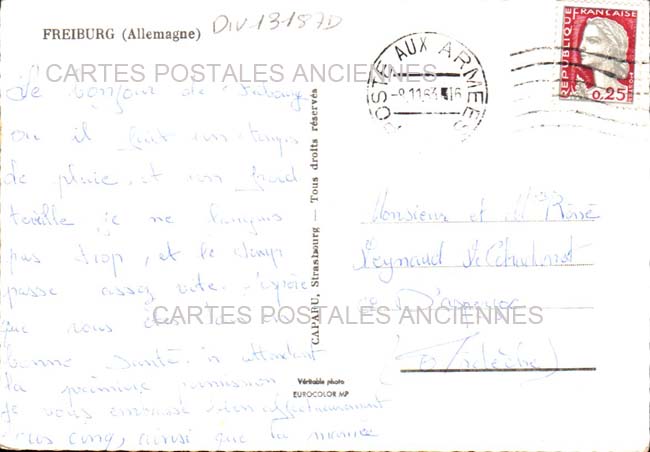 FREIBURG (Allemagne)
Div-13-187D
POSTE AUX ARMEES
-9.11.63 16
REPUBLIQUE FRANÇAISE
0,25
CARTES POSTALES ANCIENNES
Le bonjour de Fribourg
où il fait un temps
de pluie, et un froid
terrible, je ne languis
pas trop, et le temps
passe assez vite. J'espère
que vous êtes
bonne santé. en attendant
la première permission
je vous embrasse bien affectueusement
tous cinq, ainsi que la
CAPABU, Strasbourg — Tous droits réservés
Véritable photo
EUROCOLOR MP
Monsieur et Me René
Reynaud
CARTES POSTALES ANCIENNES
(en Ardèche)